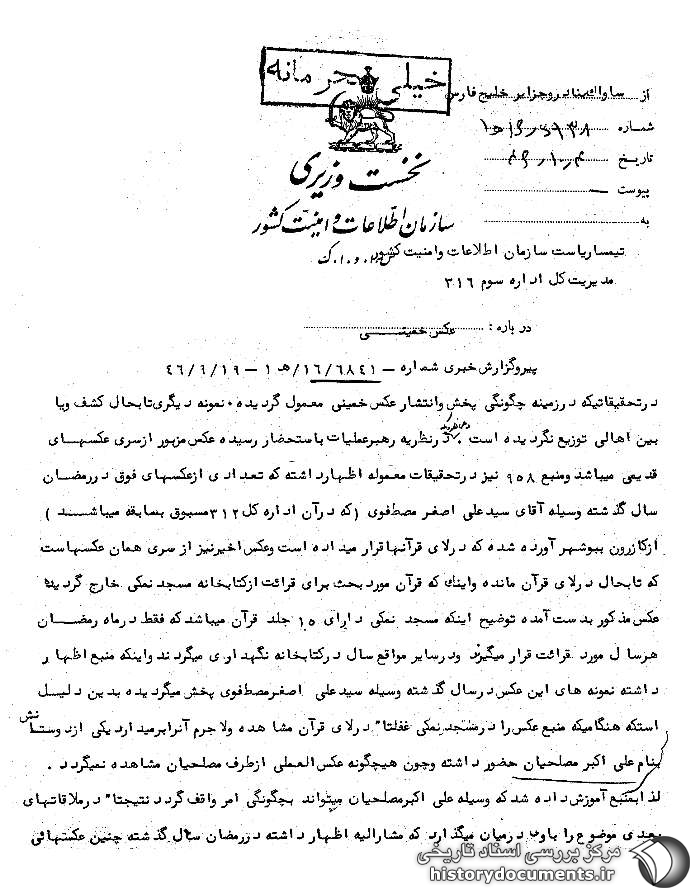 خیلی محرمانه
از ساواک بنادر و جزایر خلیج فارس
شماره
تاریخ
پیوست
به
نخست وزیری
سازمان اطلاعات و امنیت کشور
تیمسار ریاست سازمان اطلاعات وامنیت کشور
مدیریت کل اداره سوم ۳۱۶
درباره : عکس خمینی
پیروگزارش خبری شماره – ۱۶/۶۸۴۱/هـ ۱ – ۴۶/۹/۱۹
درتحقیقاتیکه درزمینه چگونگی پخش وانتشار عکس خمینی معمول گردیده نمونه دیگری تابحال کشف ویا
بین اهالی توزیع نگردیده است درنظریه رهبرعملیات باستحضار رسیده عکس مزبور ازسری عکسهای
قدیمی میباشد ومنبع ۹۵۸ نیز درتحقیقات معموله اظهارداشته که تعدادی ازعکسهای فوق دررمضان
سال گذشته وسیله آقای سیدعلی اصغر مصطفوی (که درآن اداره کل ۳۱۲مسبوق بسابقه میباشند )
ازکازرون ببوشهر آورده شده که درلای قرآنهاقرار میداده است وعکس اخیرنیز از سری همان عکسهاست
که تابحال درلای قرآن مانده واینک که قرآن مورد بحث برای قرائت ازکتابخانه مسجد نمکی خارج گردیده
عکس مذکور بدست آمده توضیح اینکه مسجد نمکی دارای ۱۵ جلد قرآن میباشدکه فقط درماه رمضان
هرسال مورد قرائت قرار میگیرند ودرسایر مواقع سال درکتابخانه نگهداری میگردند واینکه منبع اظهار
داشته نمونه های این عکس درسال گذشته وسیله سیدعلی اصغرمصطفوی پخش میگردیده بدین دلیل
استکه هنگامیکه منبع عکس را درمسجد نمکی غفلتا" درلای قرآن مشاهده ولاجرم آنرابرمیدارد یکی ازدوستانش
بنام علی اکبر مصلحیان حضور داشته وچون هیچگونه عکس العملی ازطرف مصلحیان مشاهده نمیگردد .
لذا بمنبع آموزش داده شد که وسیله علی اکبرمصلحیان میتواند بچگونگی امر واقف گردد نتیجتا" درملاقاتهای
بعدی موضوع را باوی درمیان میگذارد که مشارالیه اظهار داشته دررمضان سال گذشته چنین عکسهائی
مرکز بررسی اسناد تاریخی
historydocuments.ir